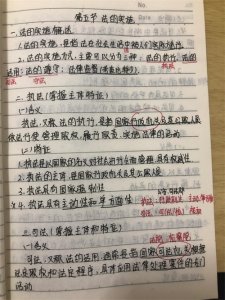 第五节 法的实施
一、法的实施概述
1.法的实施,是指法在社会生活中被人们实际施行
2.法的实施方式,主要可以分为三种:法的执行、法的
适用、法的遵守;法律监督(
司法 守法
执法
二、执法(掌握主体特征)
(一)含义
执法,又称法的执行,是指国家行政机关及其公职人员
依法行使管理职权、履行职责、实施法律的活动
(二)特征
1.执法是以国家的名义对社会进行全面管理,具有权威性
2.执法的主体,是国家行政机关及其公职人员
3.执法具有国家强制性
4.执法具有主动性和单方面性
执法:行政机关 主动、单方面
司法: 被动
三、司法(掌握主体和特征)
(一)含义
司法,又称法的适用,通常是指国家司法机关根据
法定职权和法定程序,具体应用法律处理案件的专门
活动